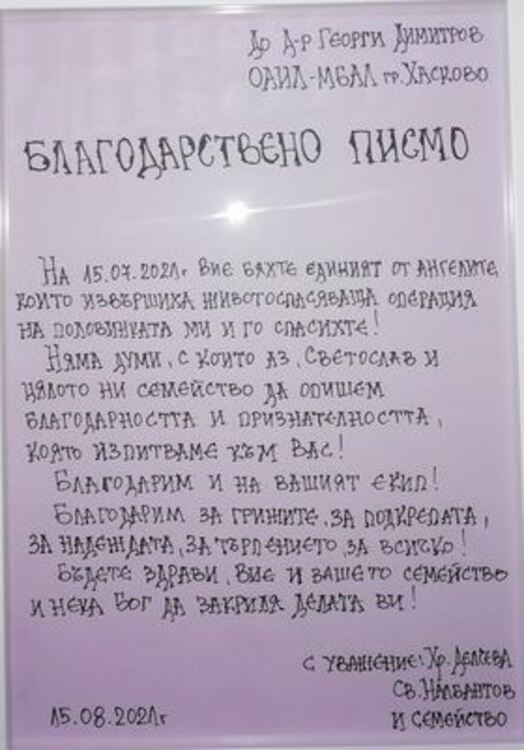 До Д-р Георги Димитров
ОАИЛ-МБАЛ гр. Хасково
БЛАГОДАРСТВЕНО ПИСМО
На 15.07.2021г Вие бяхте единият от ангелите,
които извършиха животоспасяваща операция
на половинката ми и го спасихте!
Няма думи, с които аз, Светослав и
цялото ни семейство да опишем
благодарността и признателността,
която изпитваме към Вас!
Благодарим и на вашият екип!
Благодарим за грижите, за подкрепата,
за надеждата, за търпението, за всичко!
Бъдете здрави, Вие и Вашето семейство
и нека Бог да закриля делата Ви!
С уважение: Хр. Делчева
Св. Налбантов
и семейство
15.08.2021г